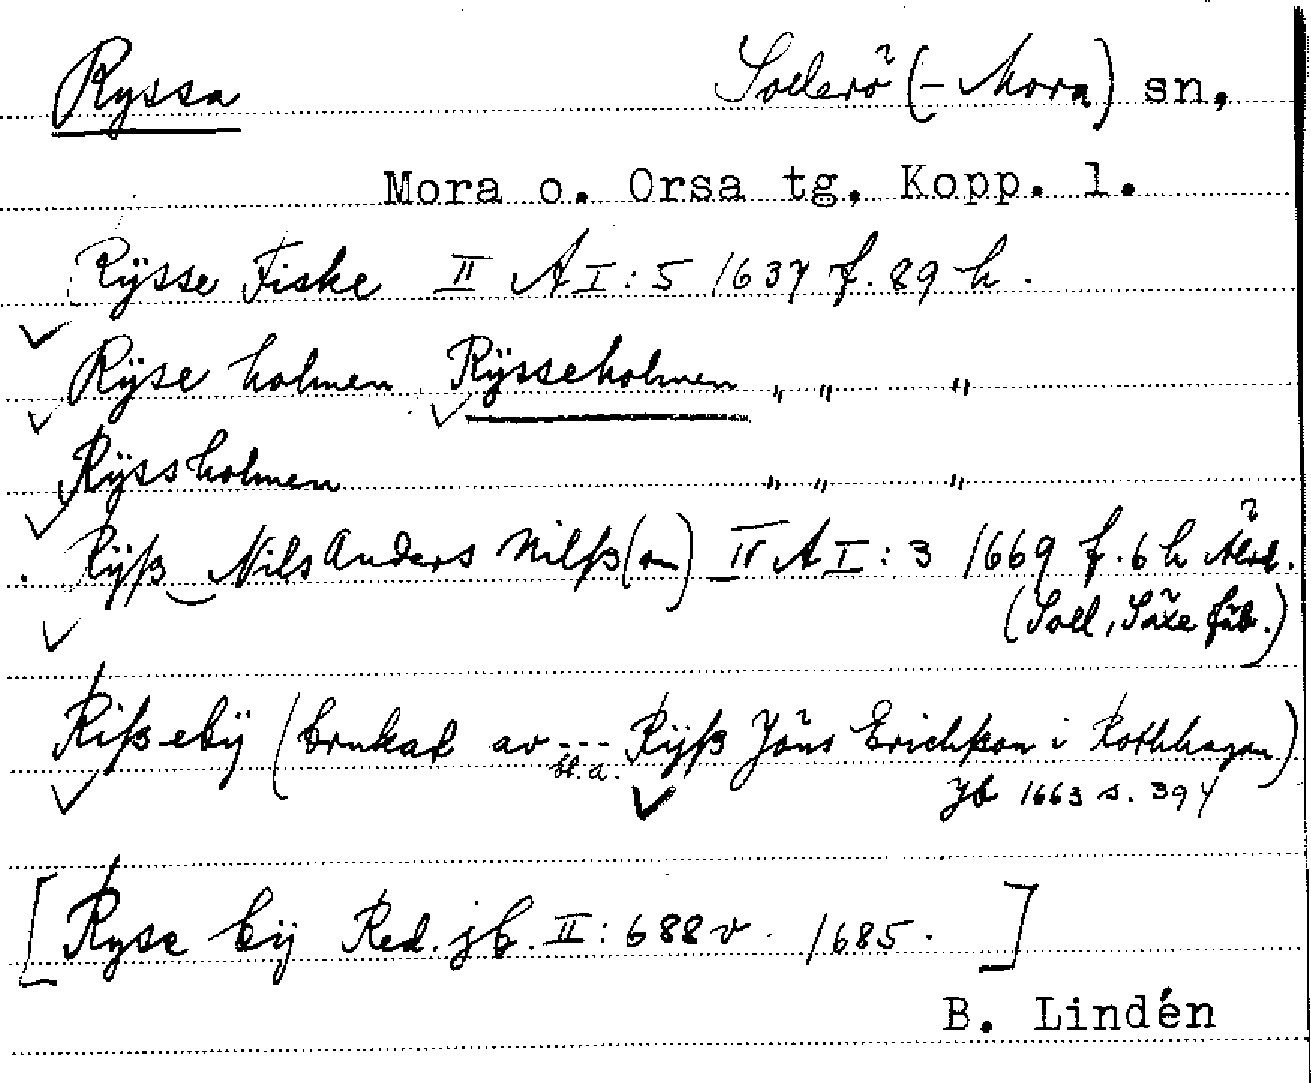 Ryssa Sollerö (- Mora) sn,
Mora o. Orsa tg. Kopp. l.
Rÿsse Fiske II A I:5 1637 f. 89 h.
Rÿse holmen Rÿsseholmen " " "
Rÿssholmen " " "
Rÿß Nils Anders Nilß(on) II A I:3 1669 f. 6 h
(Soll, Säxe fäb.)
Rißebÿ (brukad av --- Rÿß Jöns Erichßon i Rothhagen)
bl.a. Jb 1663 s. 394
[Ryse bÿ Red. jb. II:688 v. 1685.]
B. Lindén